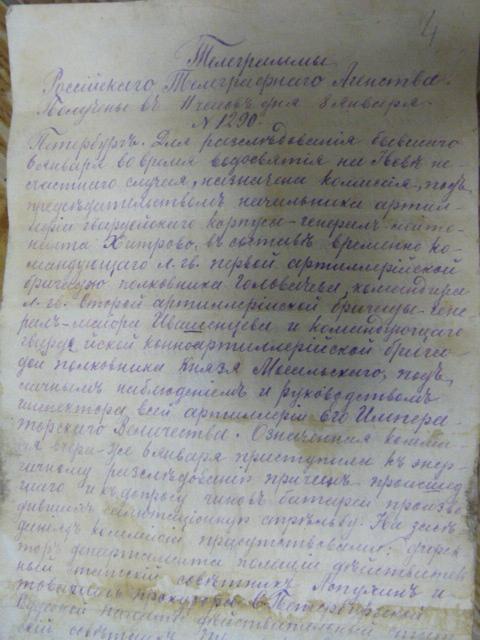 4
Телеграммы
Россійскаго Телеграфнаго Агенства.
Получены въ 11 часовъ дня 8 января.
№ 1290.
Петербургъ. Для разслѣдованія бывшаго
6 января во время водосвятія на Невѣ не-
счастнаго случая, назначена комиссія, подъ
предсѣдательствомъ начальника артил-
леріи гвардейскаго корпуса-генералъ-лейте-
нанта Хитрово, въ составѣ временно ко-
мандующаго л.-гв. первой артиллерійской
бригадою полковника Головачева, командира
л.-гв. второй артиллерійской бригады-гене-
ралъ-майора Иващенцева и командующаго
гвардейской конноартиллерійской брига-
дой полковника Князя Масальскаго, подъ
личнымъ наблюденіемъ и руководствомъ
инспектора всей артиллеріи Его Импера-
торскаго Величества. Означенная комисс-
ія вчера-же 6 января приступила къ энер-
гичному разслѣдованію причинъ происшед-
шаго и къ допросу чиновъ батареи произво-
дившихъ салютаціонную стрѣльбу. На засѣ-
даніяхъ комиссіи присутствовали: дирек-
торъ департамента полиціи дѣйствитель-
ный статскій совѣтникъ Лопухинъ и
товарищъ прокурора С.-Петербургской
Судебной палаты дѣйствительный
скій совѣтникъ